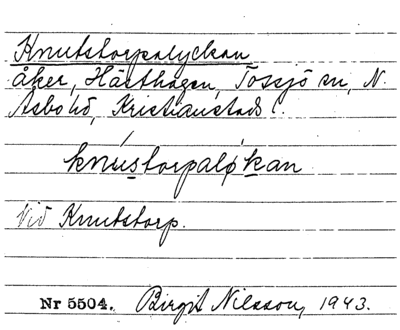 Knutstorpalyckan
åker, Hästhagen, Tossjö sn, N.
Åsbo hd, Kristianstads l.
knústorpaløkan
Vid Knutstorp.
Nr 5504. Birgit Nilsson, 1943.